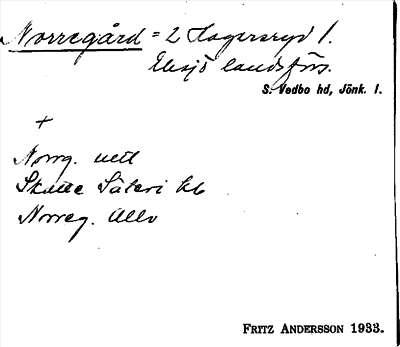 Norregård = 2 Hagersryd 1.
Eksjö landsförs.
S. Vedbo hd, Jönk. l.
+
Norrg. utt
Skatte Säteri hb
Norreg. Allv
FRITZ ANDERSSON 1933.